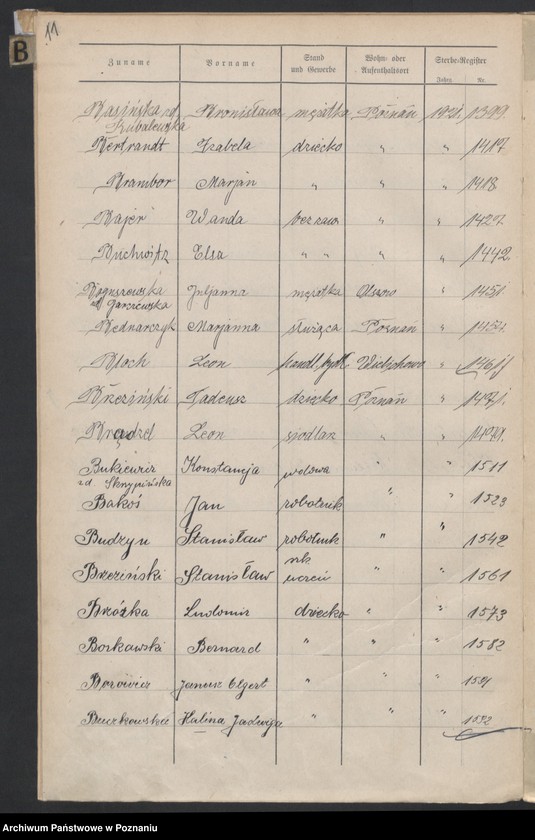 11
B
Zuname Vorname Stand und Gewerbe Wohn- oder Aufenthaltsort Sterbe-Register Jahrg. Nr.
Basińska zd. Bronisława mężatka Poznań 1921. 1399.
Kubalewska
Bertrandt Izabela dziecko " " 1417.
Brambor Marjan " " " 1418
Bajer Wanda bez zaw. " " 1427.
Buchwitz Elsa " " " " 1442
Boguszewska Juljanna mężatka Olszewo " 1451.
zd. Garczewska
Bednarczyk Marjanna służąca Poznań " 1454.
Bloch Leon handl. bydł. Wielichowo " 1461
Brzeziński Tadeusz dziecko Poznań " 1471.
Leon siodlarz " " 1479.
Bukiewicz Konstancja wdowa " " 1511
zd. Skrypińska
Bakoś Jan robotnik " " 1523
Budzyn Stanisław robotnik " " 1542
Brzeziński Stanisław " " 1561
Brózka Ludomir dziecko " " 1573
Borkawski Bernard " " " 1582
Borowicz Janusz Olgert " " " 1591
Buczkowska Halina Jadwiga " " " 1592
Archiwum Państwowe w Poznaniu